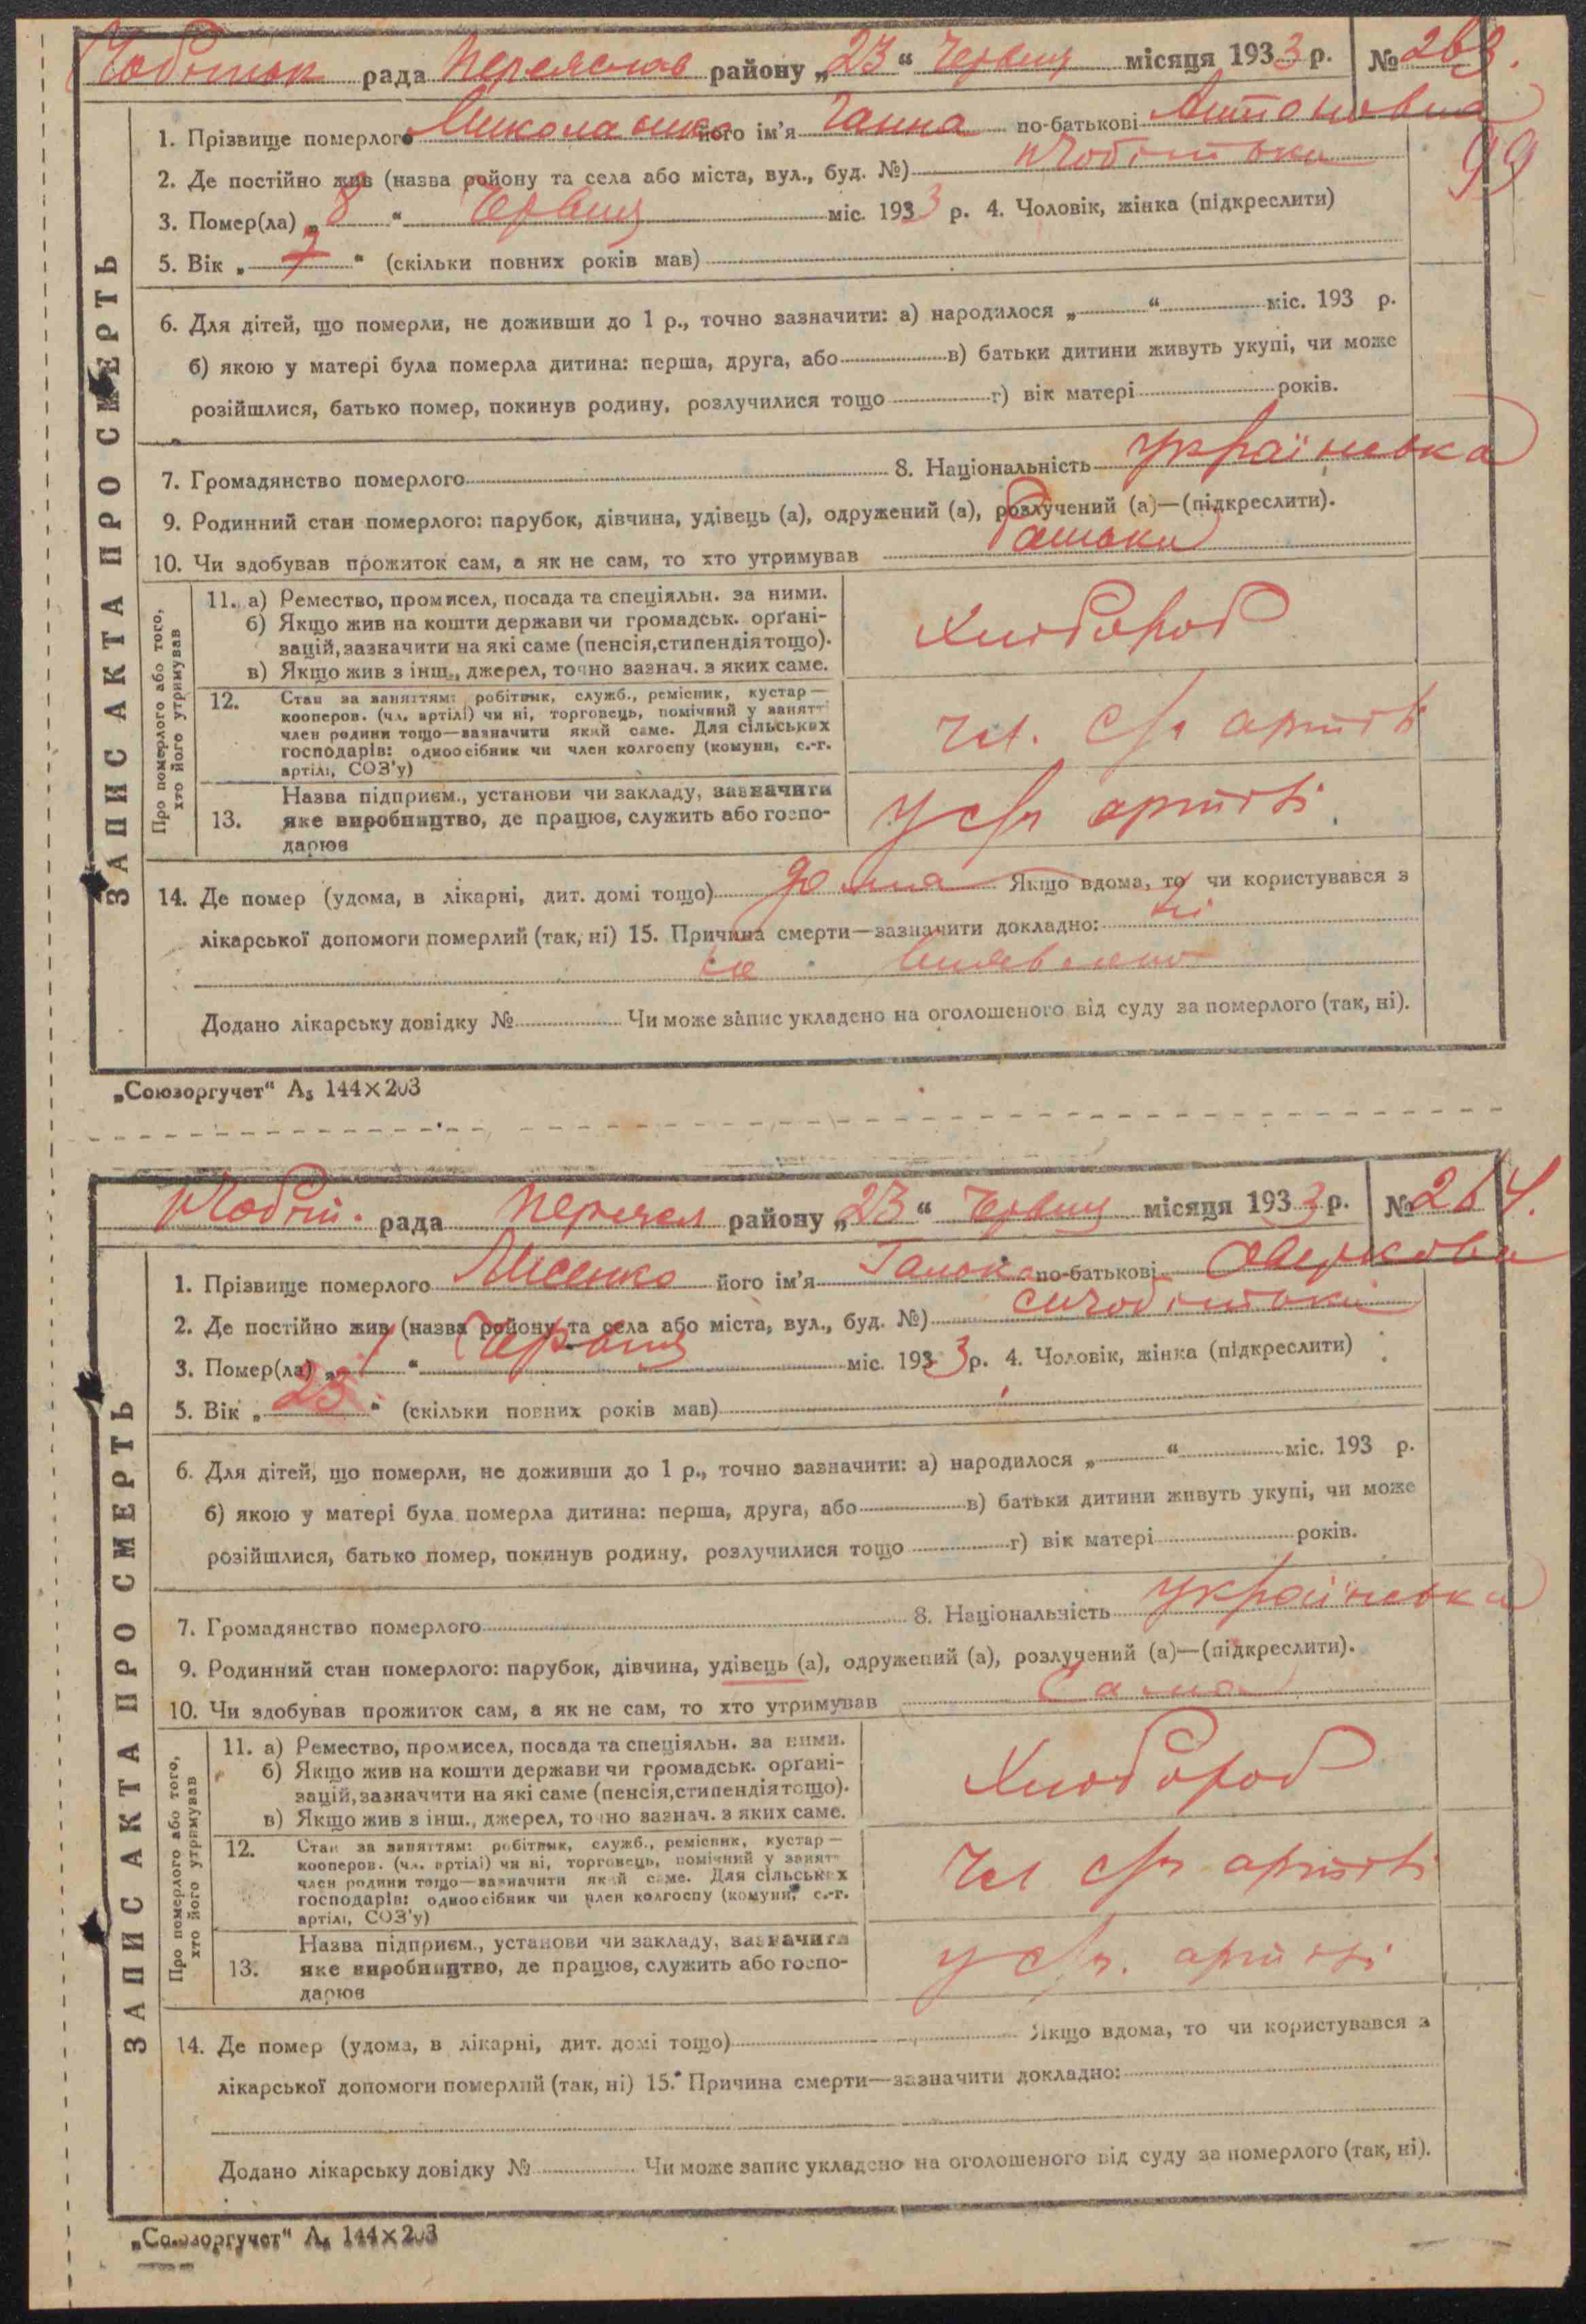 Чобітьк рада Переяслав району „23“ Червня місяця 1933 р. № 263.
1. Прізвище померлого його ім'я Ганна по-батькові Антоновна
99
2. Де постійно жив (назва району та села або міста, вул., буд. №)
3. Помер(ла) „8“ Червня міс. 1933 р. 4. Чоловік, жінка (підкреслити)
5. Вік „7“ (скільки повних років мав)
6. Для дітей, що померли, не доживши до 1 р., точно зазначити: а) народилося „ “ міс. 193 р.
б) якою у матері була померла дитина: перша, друга, або в) батьки дитини живуть укупі, чи може
розійшлися, батько помер, покинув родину, розлучилися тощо г) вік матері років.
7. Громадянство померлого 8. Національність українська
9. Родинний стан померлого: парубок, дівчина, удівець (а), одружений (а), розлучений (а)—(підкреслити).
10. Чи здобував прожиток сам, а як не сам, то хто утримував батьки
ЗАПИС АКТА ПРО СМЕРТЬ
Про померлого або того, хто його утримував
11. а) Ремество, промисел, посада та спеціяльн. за ними.
б) Якщо жив на кошти держави чи громадськ. орґані-
зацій, зазначити на які саме (пенсія, стипендія тощо).
в) Якщо жив з інш., джерел, точно зазнач. з яких саме.
Хлібороб
12. Стан за заняттям: робітник, служб., ремісник, кустар—
кооперов. (чл. артілі) чи ні, торговець, помічний у занятт
член родини тощо—зазначити який саме. Для сільських
господарів: одноосібник чи член колгоспу (комуни, с.-г.
артілі, СОЗ'у)
чл. с/г артілі
13. Назва підприєм., установи чи закладу, зазначити
яке виробництво, де працює, служить або госпо-
дарює
у с/г артілі.
14. Де помер (удома, в лікарні, дит. домі тощо) дома Якщо вдома, то чи користувався з
лікарської допомоги померлий (так, ні) 15. Причина смерти—зазначити докладно: ні
не виявлено
Додано лікарську довідку № Чи може запис укладено на оголошеного від суду за померлого (так, ні).
„Союзоргучет“ А5 144×203
рада Переясл району „23“ Червня місяця 1933 р. № 264.
1. Прізвище померлого Лисенко його ім'я по-батькові
2. Де постійно жив (назва району та села або міста, вул., буд. №)
3. Помер(ла) „1“ Червня міс. 1933 р. 4. Чоловік, жінка (підкреслити)
5. Вік „23“ (скільки повних років мав)
6. Для дітей, що померли, не доживши до 1 р., точно зазначити: а) народилося „ “ міс. 193 р.
б) якою у матері була померла дитина: перша, друга, або в) батьки дитини живуть укупі, чи може
розійшлися, батько помер, покинув родину, розлучилися тощо г) вік матері років.
7. Громадянство померлого 8. Національність українська
9. Родинний стан померлого: парубок, дівчина, удівець (а), одружений (а), розлучений (а)—(підкреслити).
10. Чи здобував прожиток сам, а як не сам, то хто утримував Сама
ЗАПИС АКТА ПРО СМЕРТЬ
Про померлого або того, хто його утримував
11. а) Ремество, промисел, посада та спеціяльн. за ними.
б) Якщо жив на кошти держави чи громадськ. орґані-
зацій, зазначити на які саме (пенсія, стипендія тощо).
в) Якщо жив з інш., джерел, точно зазнач. з яких саме.
Хлібороб
12. Стан за заняттям: робітник, служб., ремісник, кустар—
кооперов. (чл. артілі) чи ні, торговець, помічний у занятт
член родини тощо—зазначити який саме. Для сільських
господарів: одноосібник чи член колгоспу (комуни, с.-г.
артілі, СОЗ'у)
чл с/г артілі
13. Назва підприєм., установи чи закладу, зазначити
яке виробництво, де працює, служить або госпо-
дарює
у с/г. артілі
14. Де помер (удома, в лікарні, дит. домі тощо) Якщо вдома, то чи користувався з
лікарської допомоги померлий (так, ні) 15. Причина смерти—зазначити докладно:
Додано лікарську довідку № Чи може запис укладено на оголошеного від суду за померлого (так, ні).
„Союзоргучет“ А5 144×203